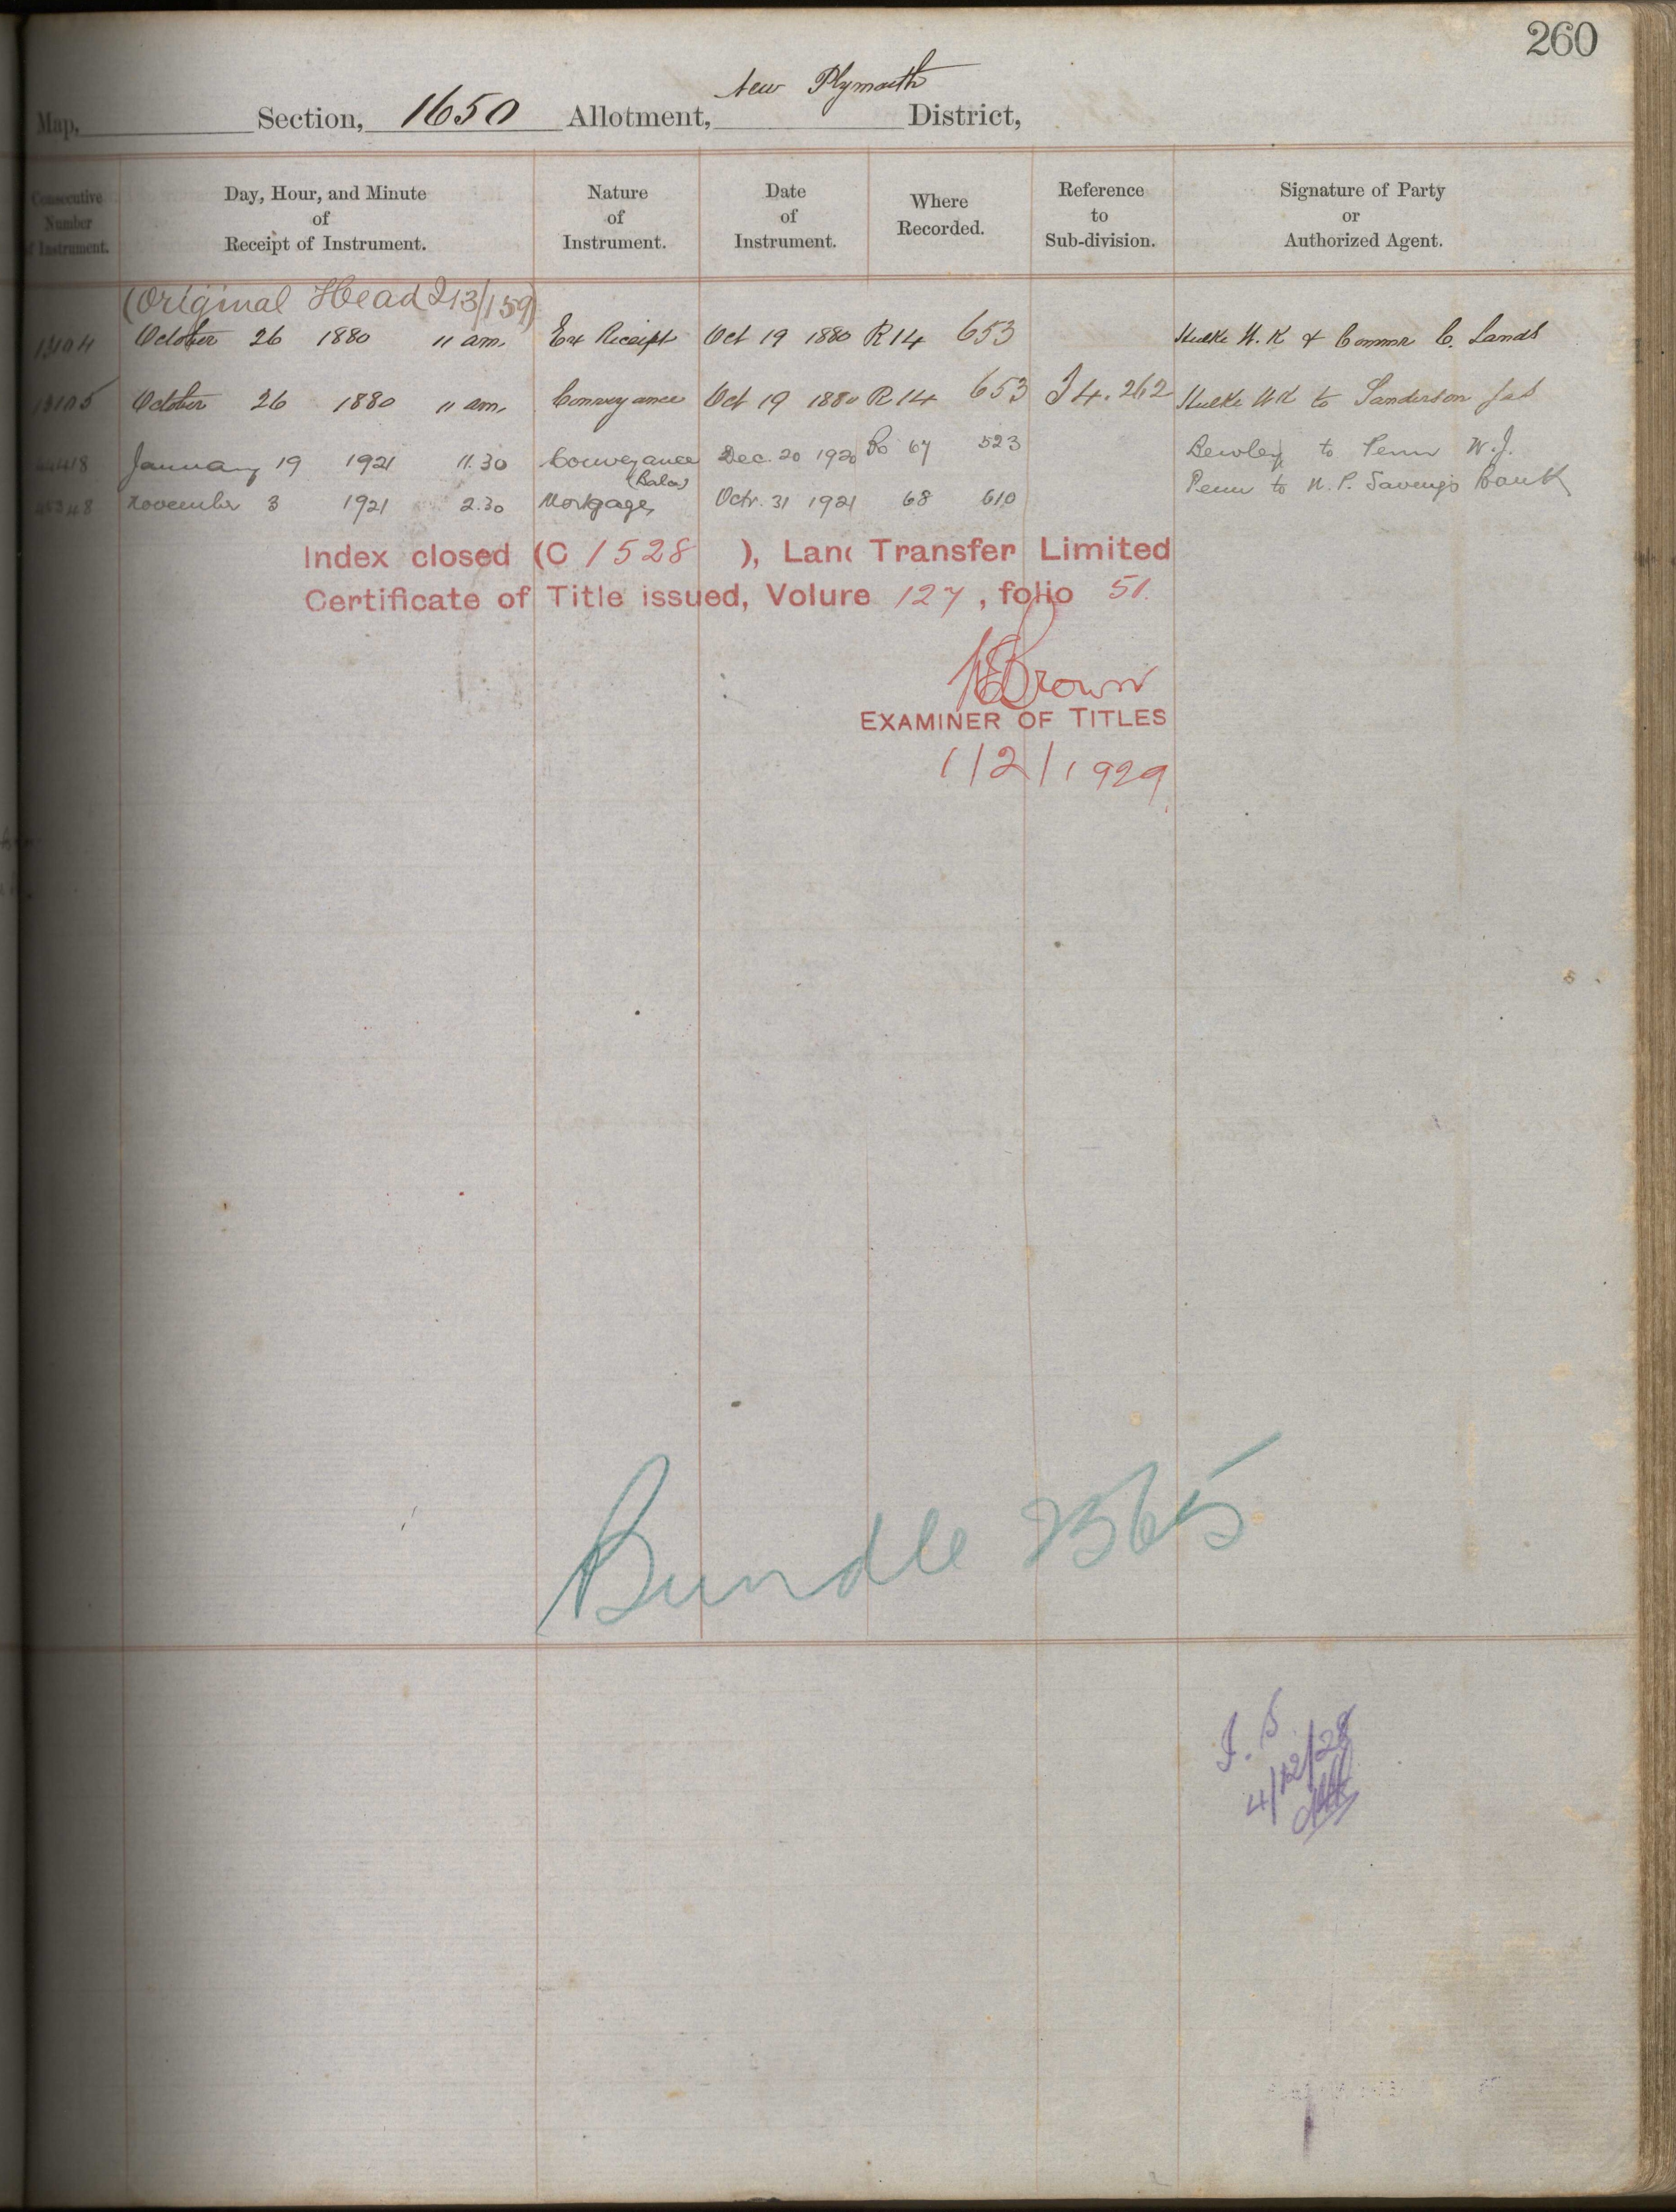 260
New Plymouth
Map, Section, 1650 Allotment, District,
Consecutive Number of Instrument.
Day, Hour, and Minute of Receipt of Instrument.
Nature of Instrument.
Date of Instrument.
Where Recorded.
Reference to Sub-division.
Signature of Party or Authorized Agent.
(Original Head I13/159)
13104 October 26 1880 11 am. Ex Receipt Oct 19 1880 R14 653 Hulke W.K & Commr C. Lands
13105 October 26 1880 11 am. Conveyance Oct 19 1880 R14 653 I4.262 Hulke WK to Sanderson Jas
January 19 1921 11.30 Conveyance Dec. 20 1920 67 523 Bewley to Penn W.J.
(Balce)
November 3 1921 2.30 Mortgage Octr. 31 1921 68 610 Penn to N.P. Savings Bank
Index closed (C 1528 ), Land Transfer Limited
Certificate of Title issued, Volume 127, folio 51.
Brown
EXAMINER OF TITLES
1/2/1929
Bundle 2565
I.S.
4/12/28